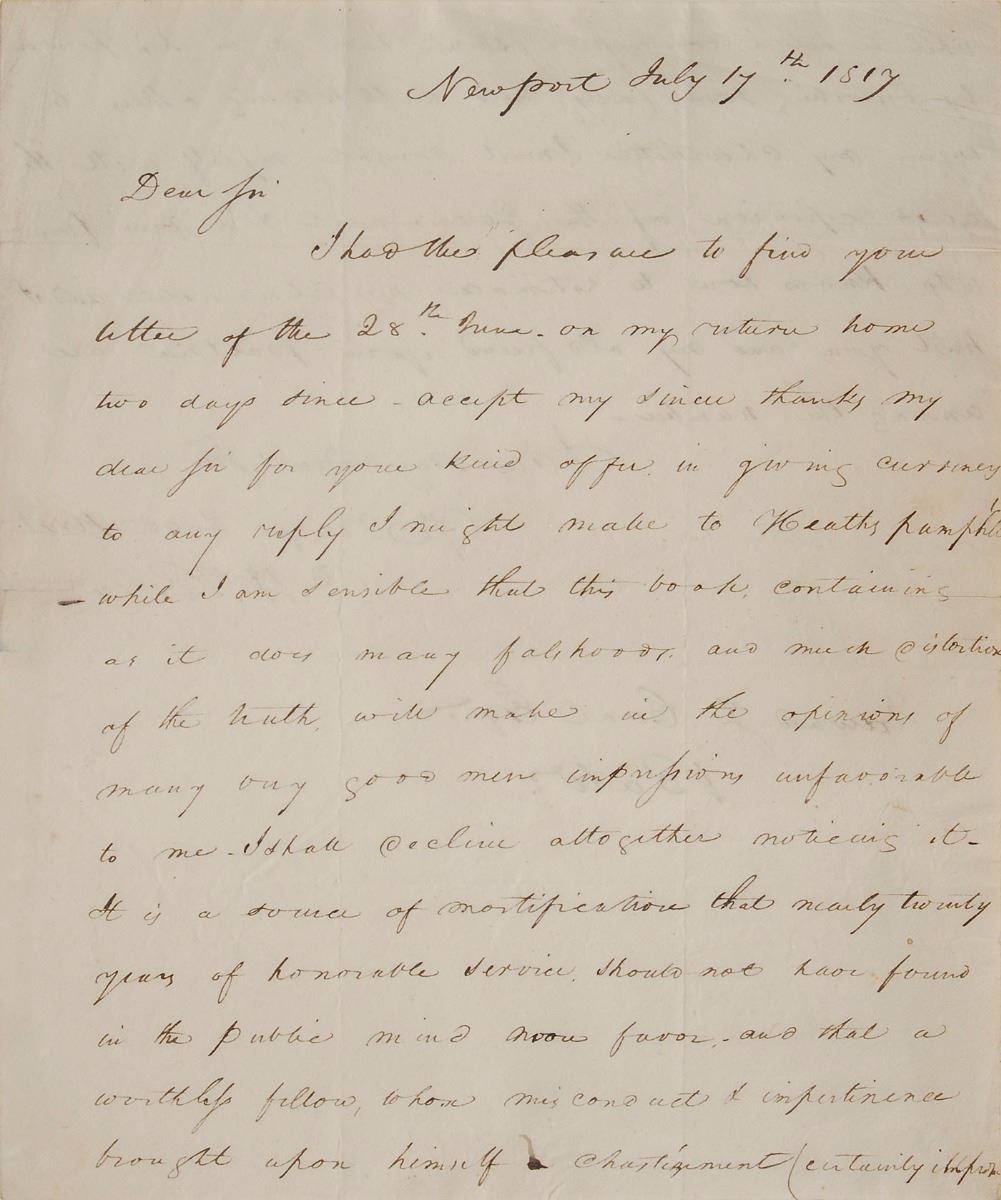 Newport July 17th 1817
Dear Sir
I had the pleasure to find your
letter of the 28th June. on my return home
two days since - accept my sincere thanks my
dear Sir for your kind offer in giving currency
to any reply I might make to Heaths pamphlet
while I am sensible that this book, containing
as it does many falshoods. and much distortion
of the truth, will make in the opinions of
many very good men impressions unfavorable
to me - I shall decline altogether noticing it -
It is a source of mortification that nearly twenty
years of honorable service, should not have found
in the public mind more favor, - and that a
worthless fellow, whose misconduct & impertinence
brought upon himself a chastisement (certainly